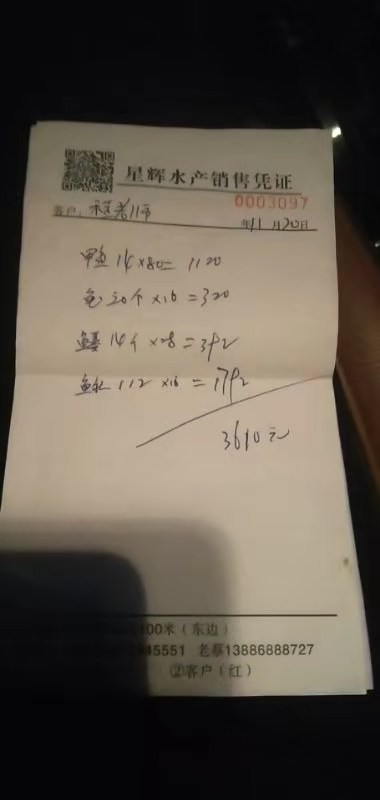 星辉水产销售凭证
0003097
客户: 老师
年11月30日
甲鱼 14×80=1120
鱼 20个×16=320
14个×28=392
112×16=1792
3610元
100米(东边)
45551 老蔡13886888727
②客户(红)